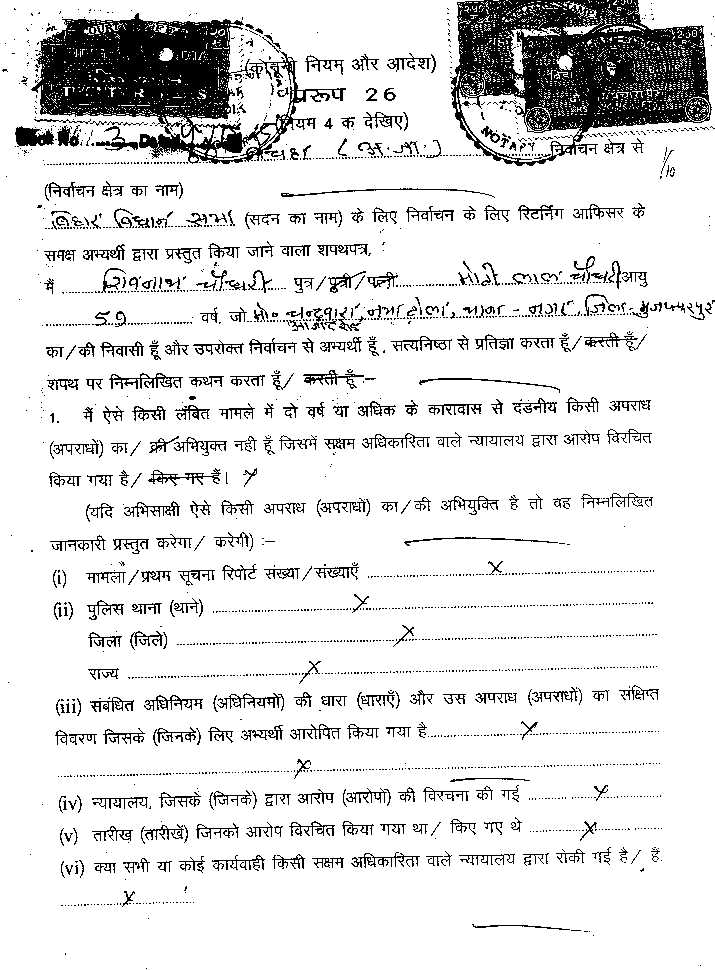 (कानूनी नियम और आदेश)
प्ररूप 26
(नियम 4 क देखिए)
NOTARY
(अ.जा.) निर्वाचन क्षेत्र से
1/10
(निर्वाचन क्षेत्र का नाम)
बिहार विधान सभा (सदन का नाम) के लिए निर्वाचन के लिए रिटर्निंग आफिसर के
समक्ष अभ्यर्थी द्वारा प्रस्तुत किया जाने वाला शपथपत्र,
मैं शिवनाथ चौधरी पुत्र/पुत्री/पत्नी मोती लाल चौधरी आयु
59 वर्ष, जो मो० चन्दवारा, नया टोला, थाना - नगर, जिला - मुजफ्फरपुर
का/की निवासी हूँ और उपरोक्त निर्वाचन से अभ्यर्थी हूँ, सत्यनिष्ठा से प्रतिज्ञा करता हूँ/ करती हूँ/
शपथ पर निम्नलिखित कथन करता हूँ/ करती हूँ :-
1. मैं ऐसे किसी लंबित मामले में दो वर्ष या अधिक के कारावास से दंडनीय किसी अपराध
(अपराधों) का/ की अभियुक्त नही हूँ जिसमें सक्षम अधिकारिता वाले न्यायालय द्वारा आरोप विरचित
किया गया है/ किए गए हैं। X
(यदि अभिसाक्षी ऐसे किसी अपराध (अपराधों) का/की अभियुक्ति है तो वह निम्नलिखित
जानकारी प्रस्तुत करेगा/ करेगी) :-
(i) मामला/प्रथम सूचना रिपोर्ट संख्या/संख्याएँ X
(ii) पुलिस थाना (थाने) X
जिला (जिले) X
राज्य X
(iii) संबंधित अधिनियम (अधिनियमों) की धारा (धाराएँ) और उस अपराध (अपराधों) का संक्षिप्त
विवरण जिसके (जिनके) लिए अभ्यर्थी आरोपित किया गया है X
X
(iv) न्यायालय, जिसके (जिनके) द्वारा आरोप (आरोपों) की विरचना की गई X
(v) तारीख (तारीखें) जिनको आरोप विरचित किया गया था/ किए गए थे X
(vi) क्या सभी या कोई कार्यवाही किसी सक्षम अधिकारिता वाले न्यायालय द्वारा रोकी गई है/ हैं.
X